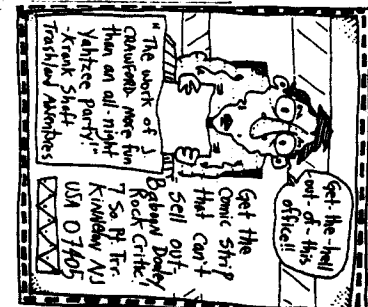 Get-the-hell
-out-of-this
office!!
Get the
Comic strip
that can't
sell out-
Baboon Dooley
Rock Critic!
7 So. Pt. Terr.
Kinnelon NJ
USA 07405
"The work of J
CRAWFORD more fun
than an all-night
Yahtzee party!"
-Krank Shaft
Trashland Adventures